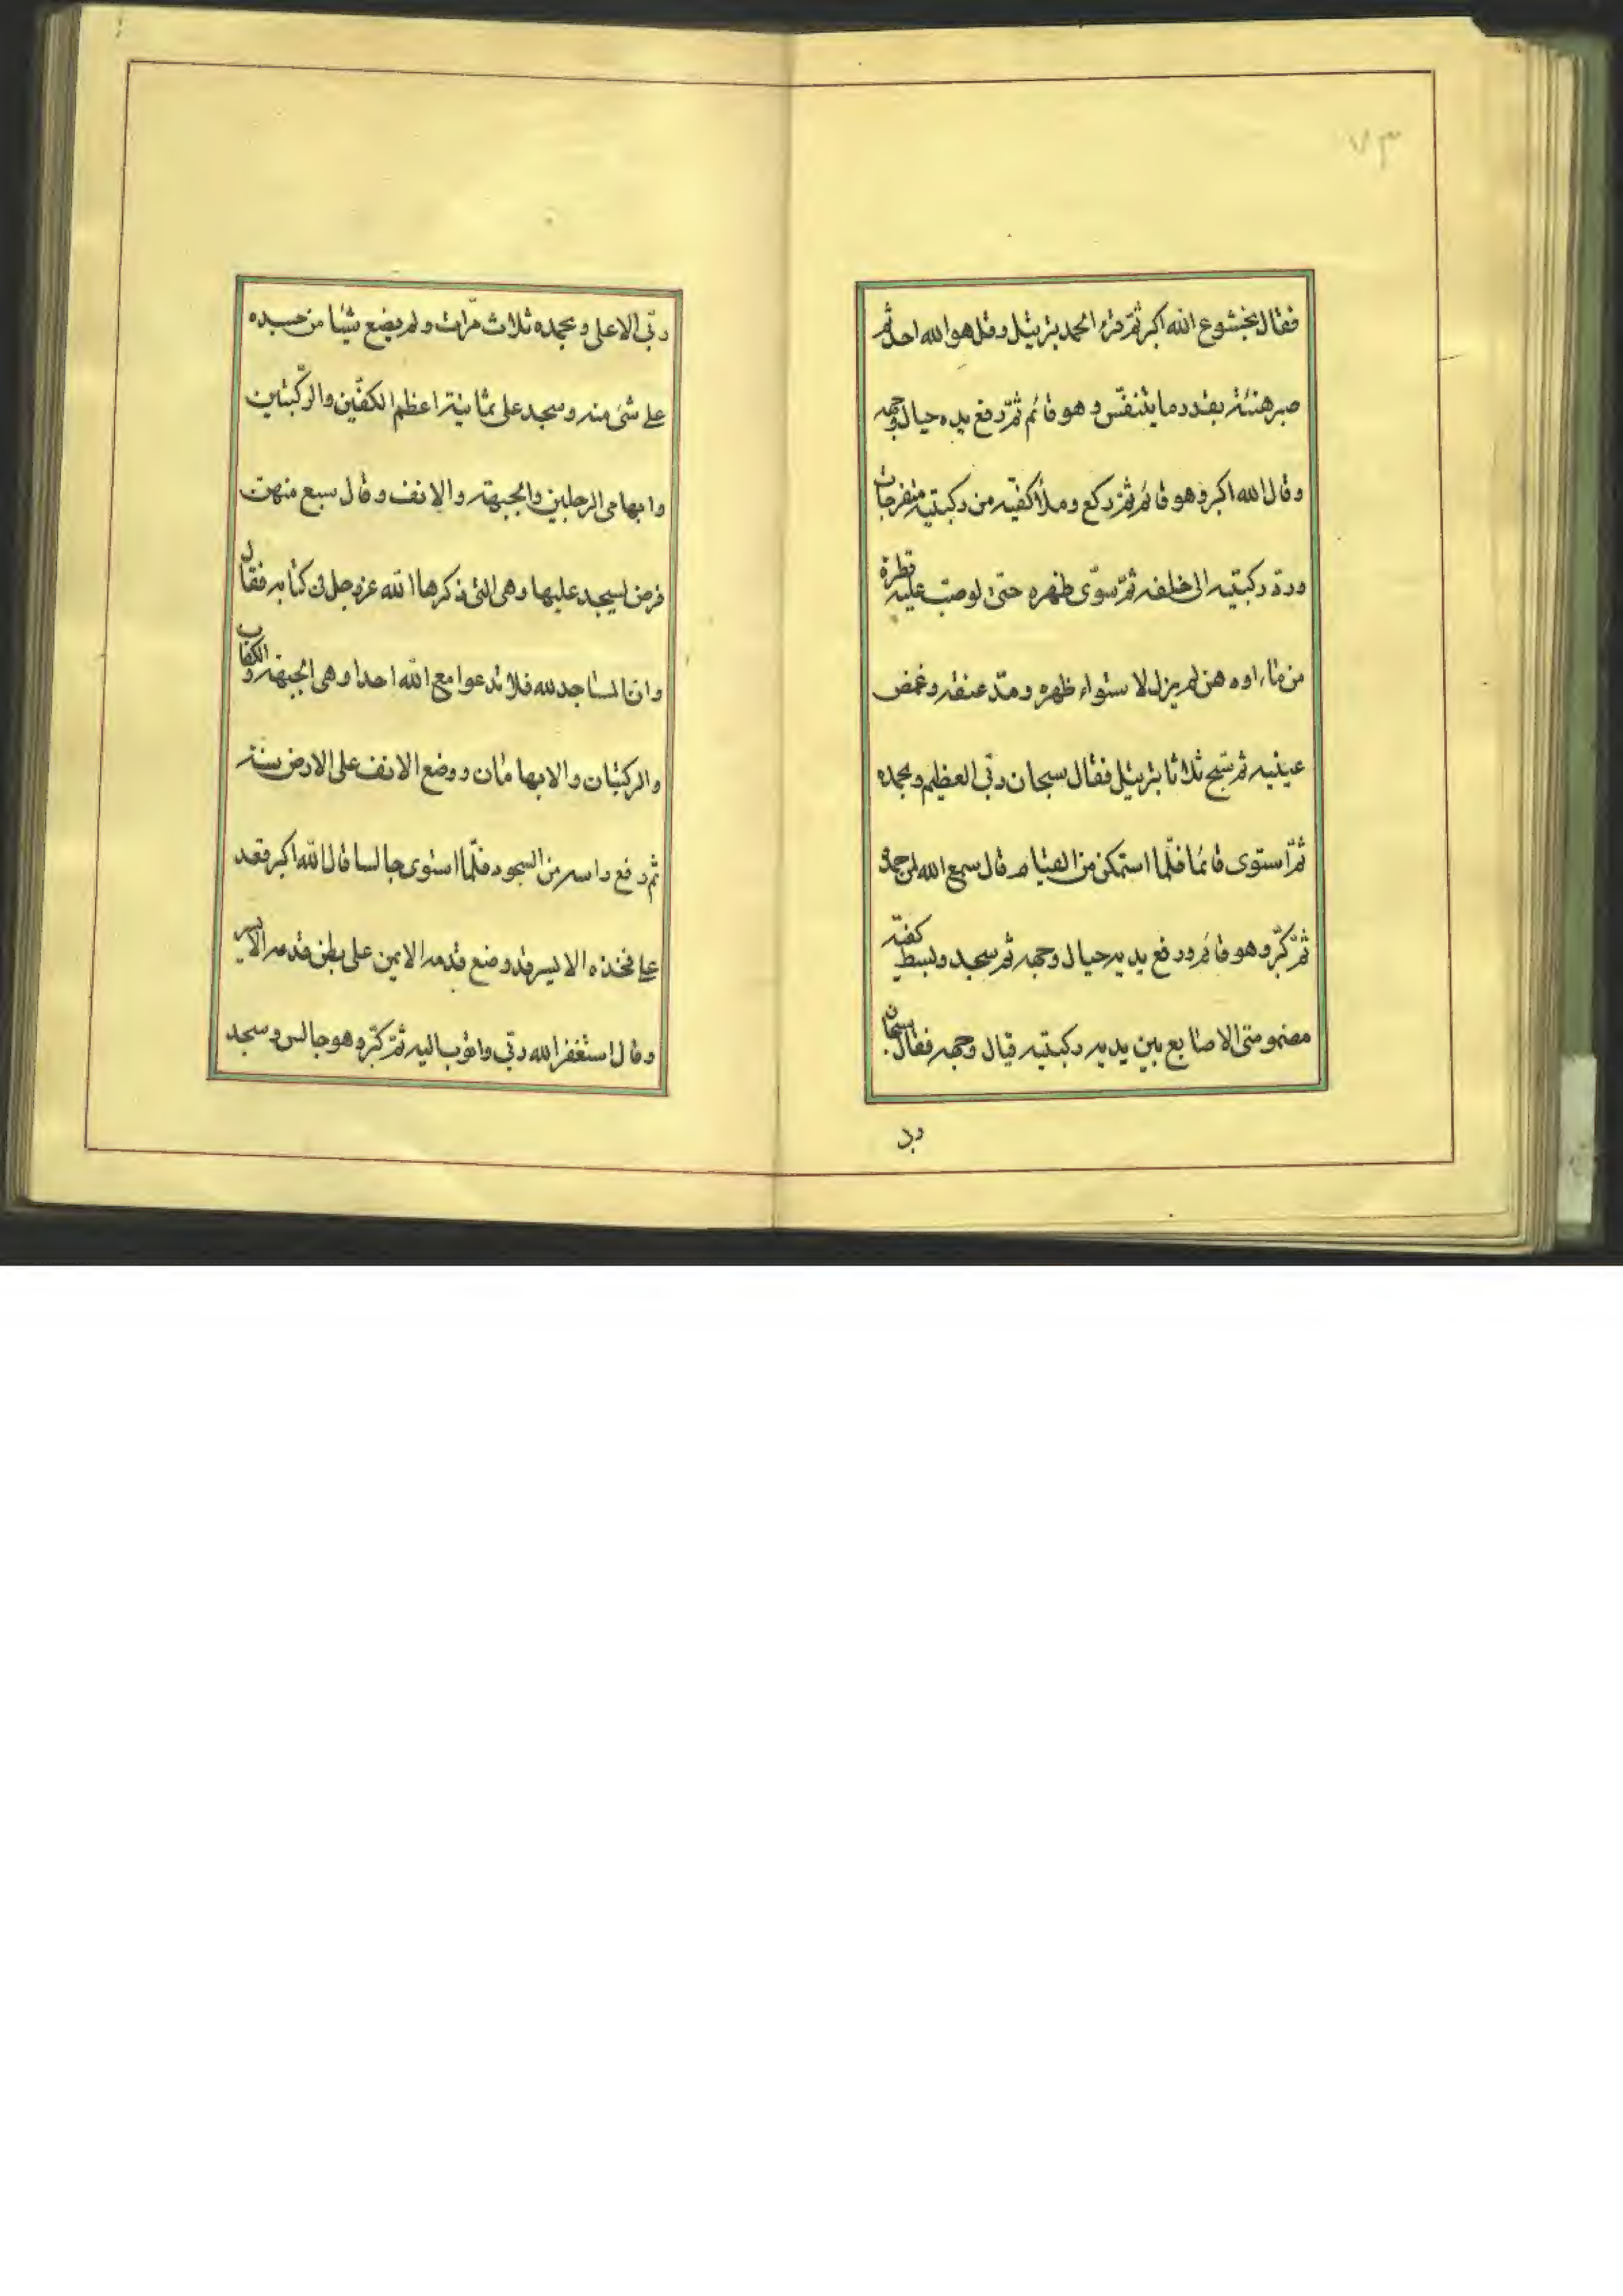 ٧٣
فقال بخشوع الله اكبر ثمّ قرء الحمد بترتيل وقل هو الله احد ثم
صبر هنيئة بقدر ما يتنفّس وهو قائم ثمّ رفع يده حيال وجهه
وقال الله اكبر وهو قائم ثمّ ركع وملأ كفّيه من ركبتيه منفرجات
وردّ ركبتيه الى خلفه ثمّ سوّى ظهره حتى لوصبّ عليه قطرة
من ماء اوه هن لم يزل لاستواء ظهره ومدّ عنقه وغمض
عينيه ثم سبّح ثلاثا بترتيل فقال سبحان ربّي العظيم وبحمده
ثمّ استوى قائما فلمّا استمكن من القيام قال سمع الله لمن حمده
ثمّ كبّر وهو قائم ورفع يديه حيال وجهه ثم سجد وبسط كفيّه
مضمومتى الاصابع بين يديه ركبتيه قيال وجهه فقال سبحان
ربّ
ربّي الاعلى وبحمده ثلاث مرّات ولم يضع شيئا من جسده
على شئ منه وسجد على ثمانية اعظم الكفّين والرّكبتين
وابهامى الرجلين والجبهة والانف وقال سبع منهن
فرض ليسجد عليها وهى التى ذكرها الله عز وجل فى كتابه فقال
وانّ المساجد لله فلا تدعوا مع الله احدا وهى الجبهة والكفاب
والركبتان والابهامان ووضع الانف على الارض سنة
ثم رفع راسه من السجود فلمّا استوى جالسا قال الله اكبر قعد
على فخذه الايسر قد وضع قدمه الايمن على بطن قدمه الايسر
وقال استغفر الله ربّي واتوب اليه ثمّ كبّر وهو جالس وسجد